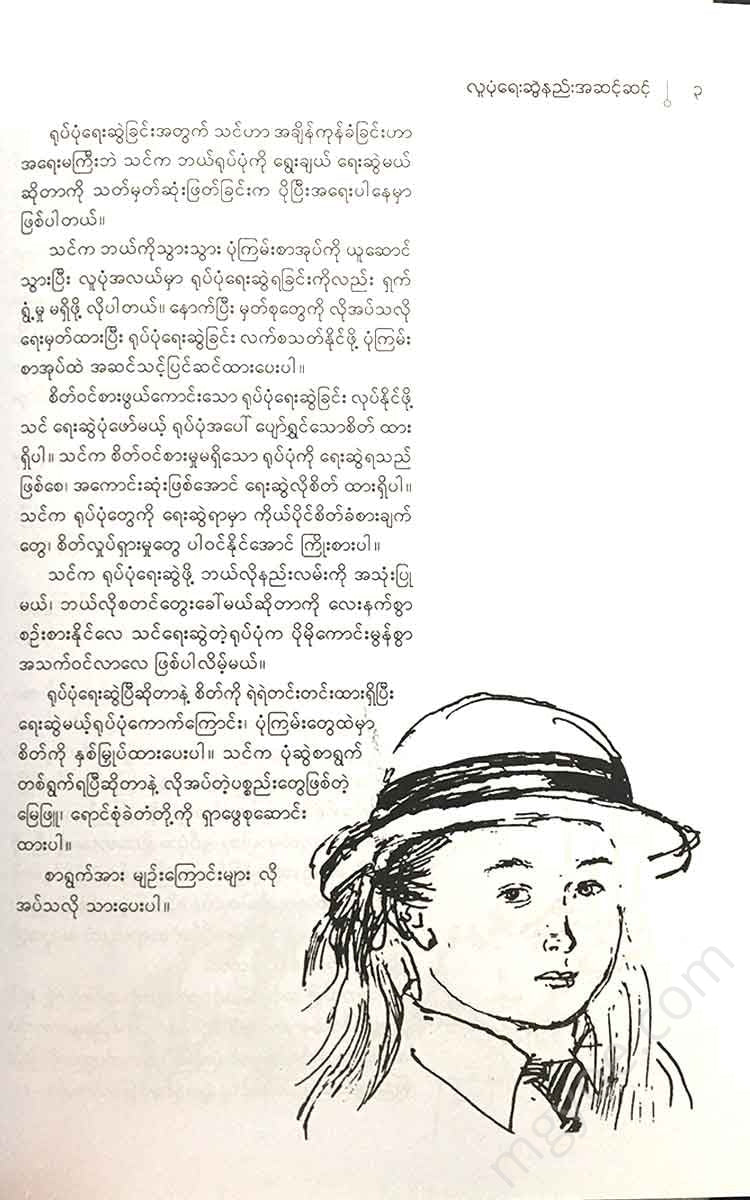 လူပုံရေးဆွဲနည်းအဆင့်ဆင့် ၃
ရုပ်ပုံရေးဆွဲခြင်းအတွက် သင်ဟာ အချိန်ကုန်ခံခြင်းဟာ
အရေးမကြီးဘဲ သင်က ဘယ်ရုပ်ပုံကို ရွေးချယ် ရေးဆွဲမယ်
ဆိုတာကို သတ်မှတ်ဆုံးဖြတ်ခြင်းက ပိုပြီးအရေးပါနေမှာ
ဖြစ်ပါတယ်။
သင်က ဘယ်ကိုသွားသွား ပုံကြမ်းစာအုပ်ကို ယူဆောင်
သွားပြီး လူပုံအလယ်မှာ ရုပ်ပုံရေးဆွဲရခြင်းကိုလည်း ရှက်
ရွံ့မှု မရှိဖို့ လိုပါတယ်။ နောက်ပြီး မှတ်စုတွေကို လိုအပ်သလို
ရေးမှတ်ထားပြီး ရုပ်ပုံရေးဆွဲခြင်း လက်စသတ်နိုင်ဖို့ ပုံကြမ်း
စာအုပ်ထဲ အဆင်သင့်ပြင်ဆင်ထားပေးပါ။
စိတ်ဝင်စားဖွယ်ကောင်းသော ရုပ်ပုံရေးဆွဲခြင်း လုပ်နိုင်ဖို့
သင် ရေးဆွဲပုံဖော်မယ့် ရုပ်ပုံအပေါ် ပျော်ရွှင်သောစိတ် ထား
ရှိပါ။ သင်က စိတ်ဝင်စားမှုမရှိသော ရုပ်ပုံကို ရေးဆွဲရသည်
ဖြစ်စေ၊ အကောင်းဆုံးဖြစ်အောင် ရေးဆွဲလိုစိတ် ထားရှိပါ။
သင်က ရုပ်ပုံတွေကို ရေးဆွဲရာမှာ ကိုယ်ပိုင်စိတ်ခံစားချက်
တွေ၊ စိတ်လှုပ်ရှားမှုတွေ ပါဝင်နိုင်အောင် ကြိုးစားပါ။
သင်က ရုပ်ပုံရေးဆွဲဖို့ ဘယ်လိုနည်းလမ်းကို အသုံးပြု
မယ်၊ ဘယ်လိုစတင်တွေးခေါ်မယ်ဆိုတာကို လေးနက်စွာ
စဉ်းစားနိုင်လေ သင်ရေးဆွဲတဲ့ရုပ်ပုံက ပိုမိုကောင်းမွန်စွာ
အသက်ဝင်လာလေ ဖြစ်ပါလိမ့်မယ်။
ရုပ်ပုံရေးဆွဲပြီဆိုတာနဲ့ စိတ်ကို ရဲရဲတင်းတင်းထားရှိပြီး
ရေးဆွဲမယ့်ရုပ်ပုံကောက်ကြောင်း၊ ပုံကြမ်းတွေထဲမှာ
စိတ်ကို နှစ်မြှုပ်ထားပေးပါ။ သင်က ပုံဆွဲစာရွက်
တစ်ရွက်ရပြီဆိုတာနဲ့ လိုအပ်တဲ့ပစ္စည်းတွေဖြစ်တဲ့
မြေဖြူ၊ ရောင်စုံခဲတံတို့ကို ရှာဖွေစုဆောင်း
ထားပါ။
စာရွက်အား မျဉ်းကြောင်းများ လို
အပ်သလို သားပေးပါ။